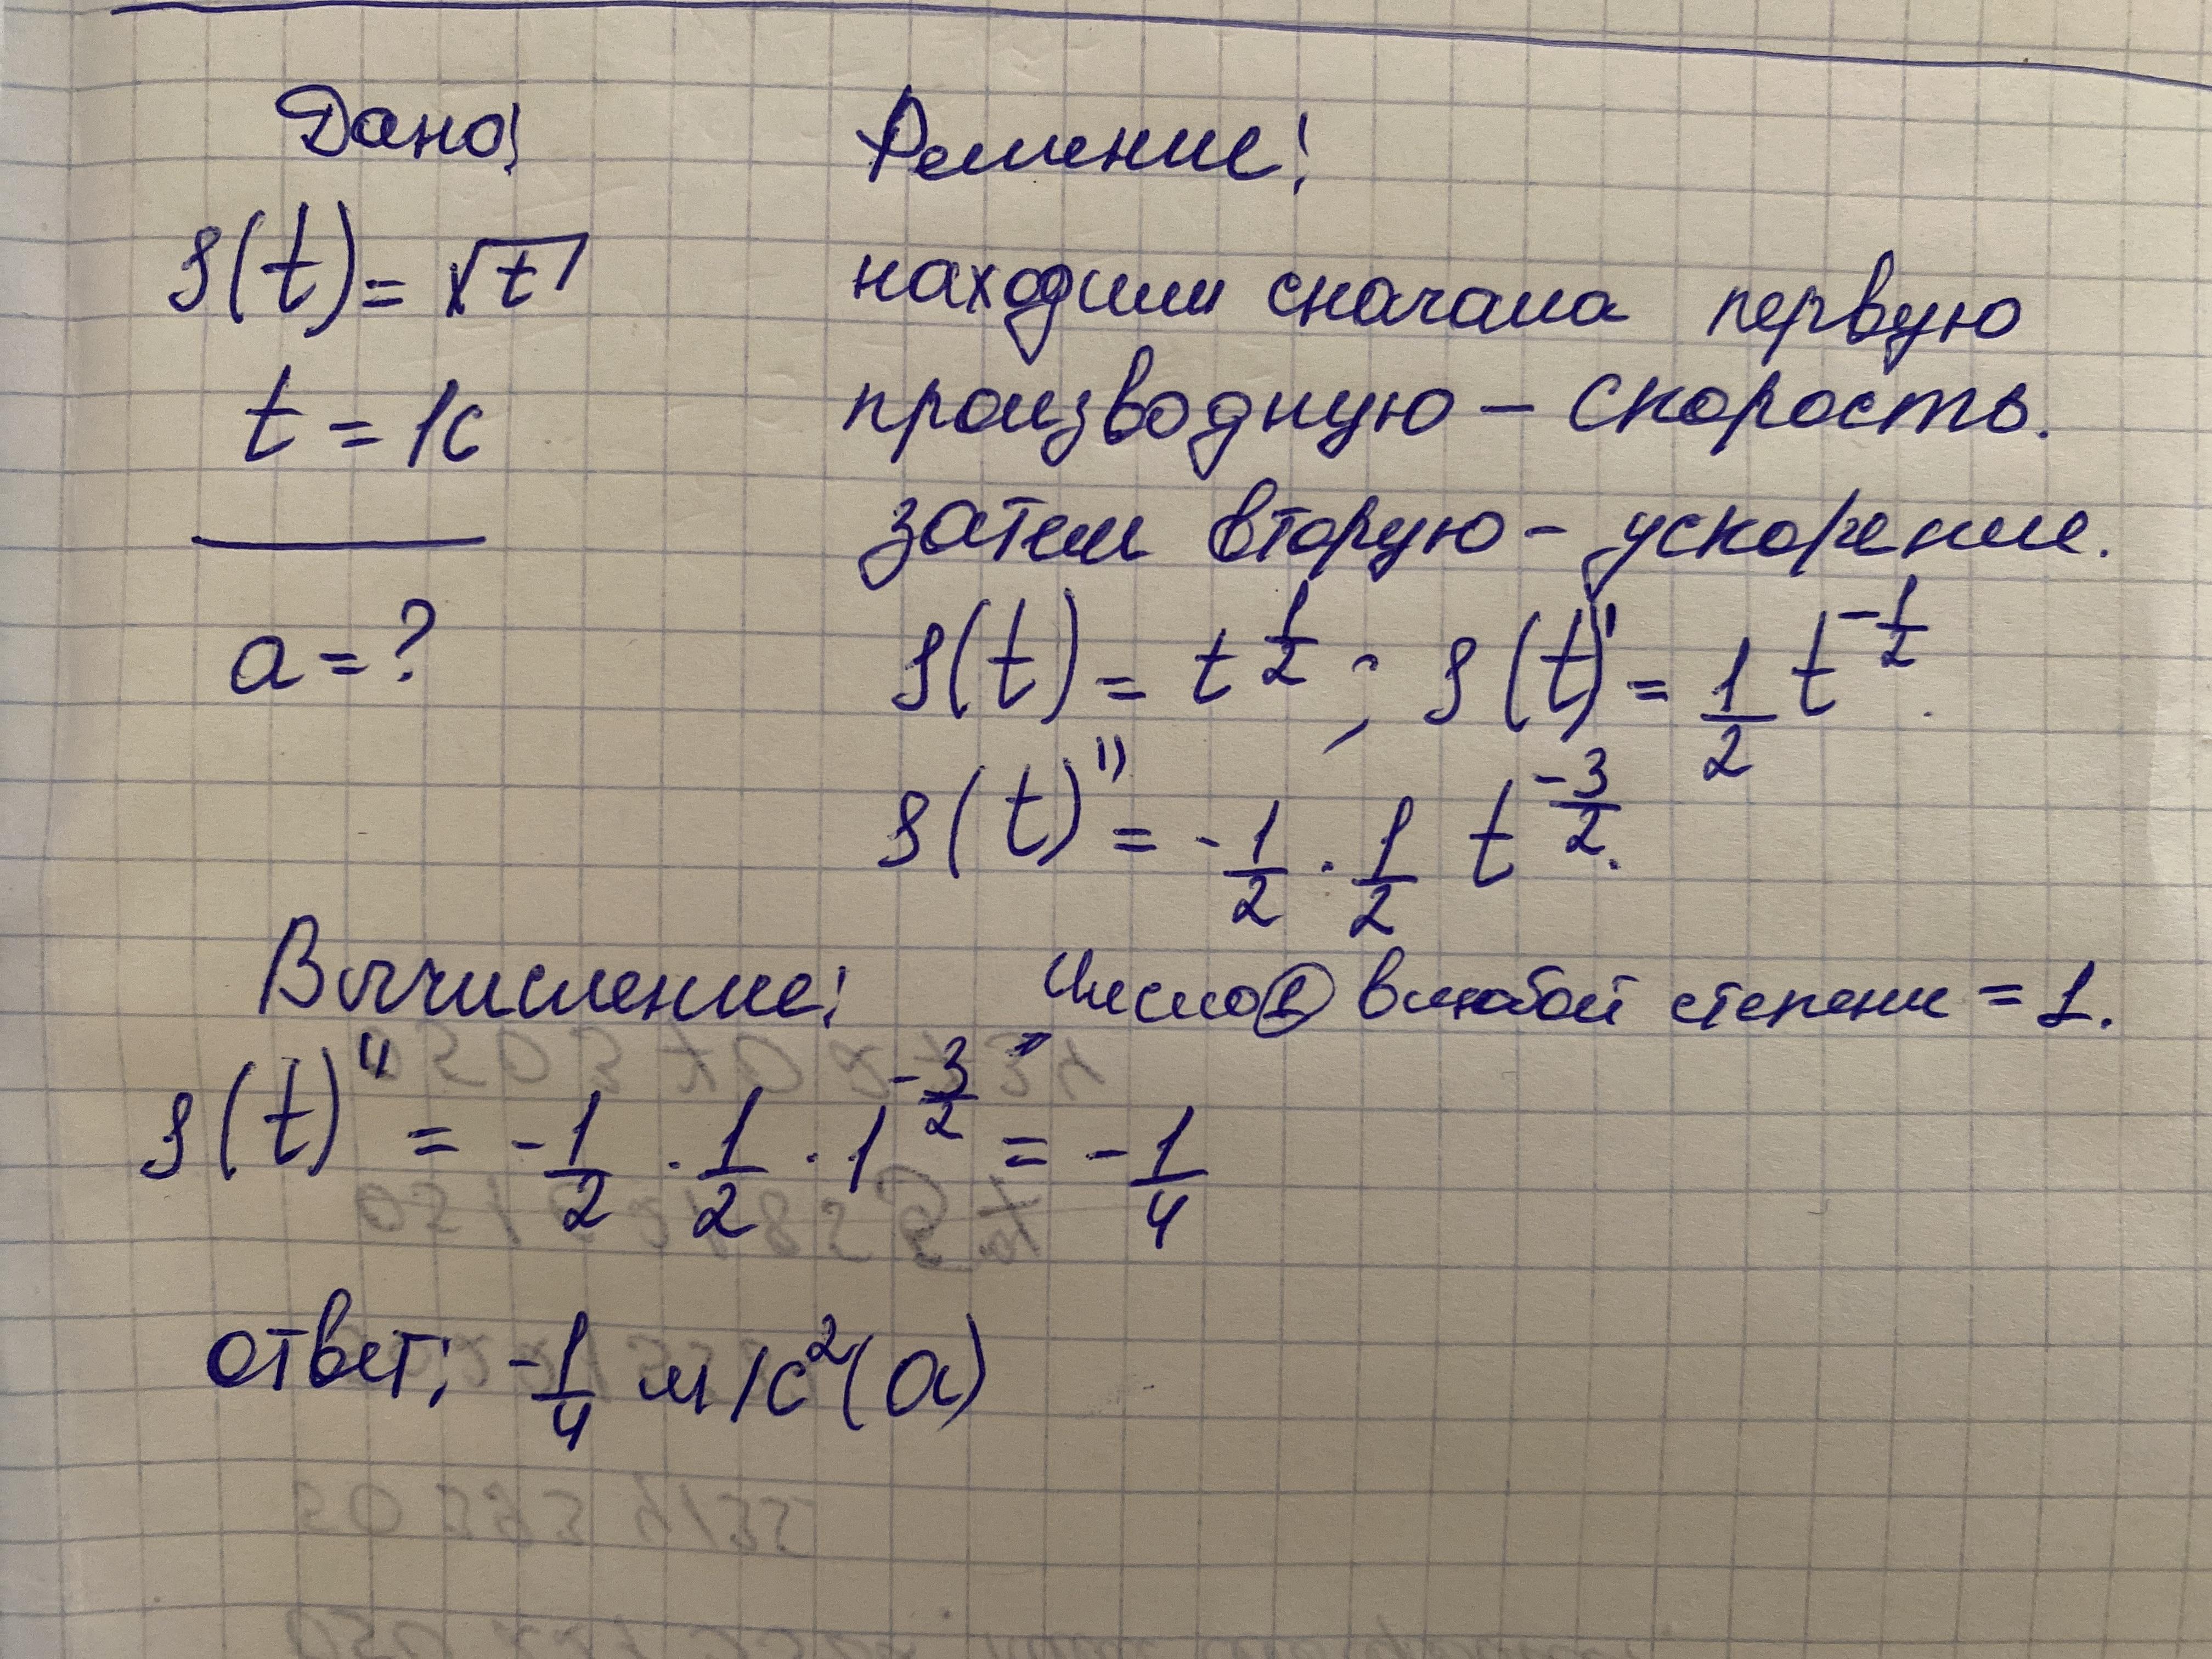 Дано:
s(t) = √t
t = 1с
a = ?
Решение:
находим сначала первую
производную – скорость.
затем вторую – ускорение.
s(t) = t^(1/2) ; s(t)' = 1/2 t^(-1/2).
s(t)'' = -1/2 · 1/2 t^(-3/2).
Вычисление: Число 1 в любой степени = 1.
s(t)'' = -1/2 · 1/2 · 1^(-3/2) = -1/4
ответ: -1/4 м/с² (a)